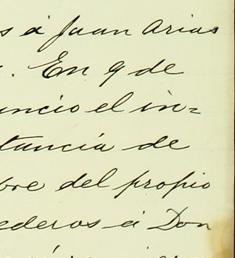 s á Juan Arias
. En 9 de
uncio el in=
tancia de
bre del propio
ederos á Don